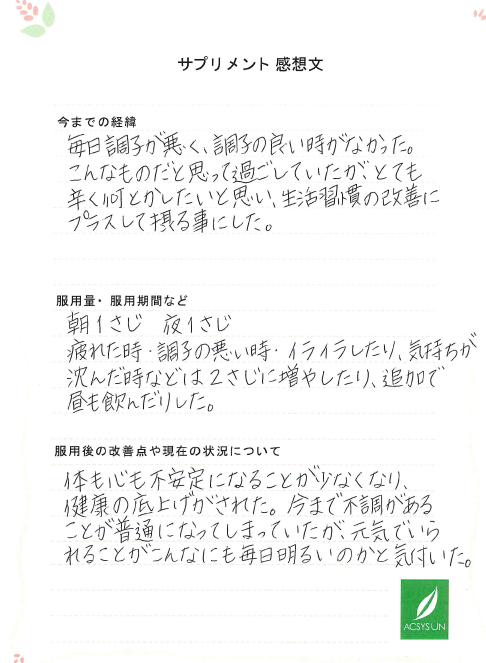 サプリメント 感想文
今までの経緯
毎日調子が悪く、調子の良い時がなかった。
こんなものだと思って過ごしていたが、とても
辛く何とかしたいと思い、生活習慣の改善に
プラスして摂る事にした。
服用量・服用期間など
朝1さじ 夜1さじ
疲れた時・調子の悪い時・イライラしたり、気持ちが
沈んだ時などは2さじに増やしたり、追加で
昼も飲んだりした。
服用後の改善点や現在の状況について
体も心も不安定になることが少なくなり、
健康の底上げがされた。今まで不調がある
ことが普通になってしまっていたが、元気でいら
れることがこんなにも毎日明るいのかと気付いた。
ACSYSUN